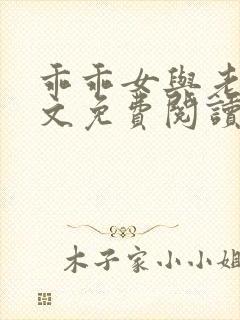 乖乖女與老
文免費閱讀
木子家小小姐